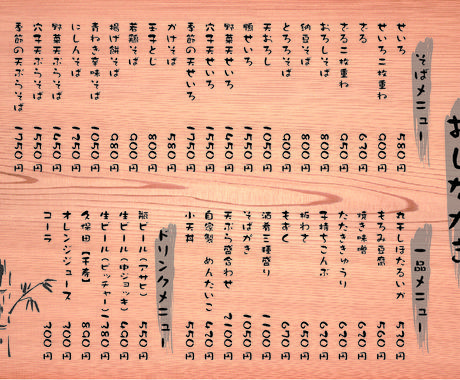 おしながき
そばメニュー
せいろ 580円
せいろ二枚重ね 900円
ざる 620円
ざる二枚重ね 950円
おろしそば 800円
納豆そば 800円
とろろそば 900円
天おろし 1050円
鴨せいろ 1550円
野菜天せいろ 1650円
穴子天せいろ 1550円
季節の天せいろ
かけそば 580円
玉子とじ 800円
若鶏そば 900円
揚げ餅そば 980円
青ねぎ辛味そば 1050円
にしんそば
野菜天ぷらそば 1650円
穴子天ぷらそば 1550円
季節の天ぷらそば 1750円
一品メニュー
丸干しほたるいか 570円
もろみ豆腐 550円
焼き味噌 620円
たたききゅうり 620円
子持ちこんぶ
板わさ
もずく 650円
酒肴三種盛り 1100円
そばがき 1050円
天ぷら盛合わせ 2100円
自家製 めんたいこ
小天丼 550円
ドリンクメニュー
瓶ビール(アサヒ) 550円
生ビール(中ジョッキ) 600円
生ビール(ピッチャー) 1780円
久保田【千寿】 800円
オレンジジュース 300円
コーラ 300円